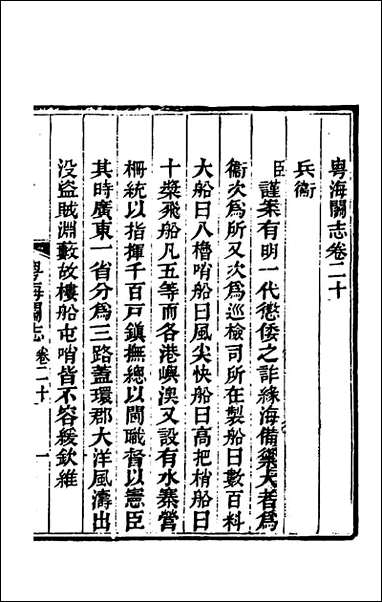 粵海關志卷二十
兵衛
臣謹案有明一代懲倭之詐緣海備禦大者爲
衞次爲所又次爲巡檢司所在製船曰數百料
大船曰八櫓哨船曰風尖快船曰高把梢船曰
十槳飛船凡五等而各港嶼澳又設有水寨營
柵統以指揮千百戸鎮撫總以閫職督以憲臣
其時廣東一省分爲三路蓋環郡大洋風濤出
没盜賊淵藪故樓船屯哨皆不容緩欽維
粵海關志 卷二十 一